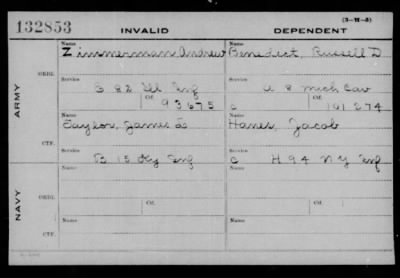 132853 INVALID DEPENDENT (3-H-5)
Name Name
Zimmerman Andrew Benedict, Russell D
ORIG.
Service Service
E 82 Ill Inf A 8 Mich Cav
Ctf. Ctf.
93675 C 101274
ARMY
Name Name
Taylor, James L Hanes, Jacob
CTF.
Service Service
B 15 Ky Inf C H 94 N Y Inf
Name Name
ORIG.
Service Service
Ctf. Ctf.
NAVY
Name Name
CTF.
Service Service